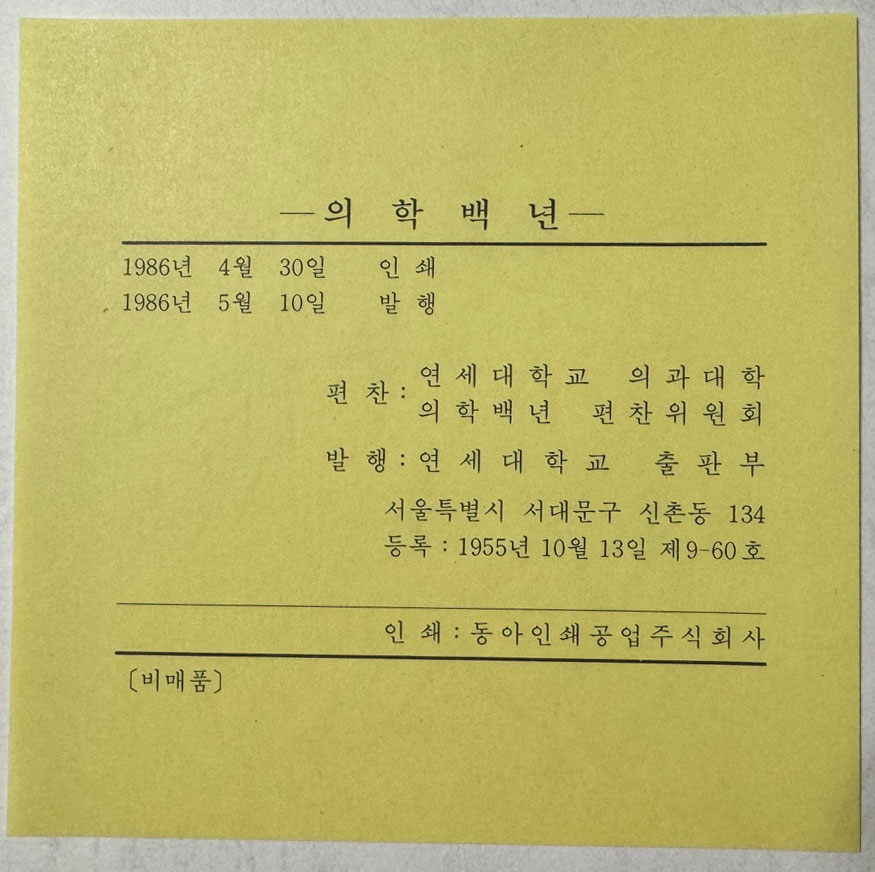 —의 학 백 년—
1986년 4월 30일 인 쇄
1986년 5월 10일 발 행
편 찬 : 연 세 대 학 교 의 과 대 학
의 학 백 년 편 찬 위 원 회
발 행 : 연 세 대 학 교 출 판 부
서울특별시 서대문구 신촌동 134
등록 : 1955년 10월 13일 제9-60호
인 쇄 : 동아인쇄공업주식회사
〔비매품〕